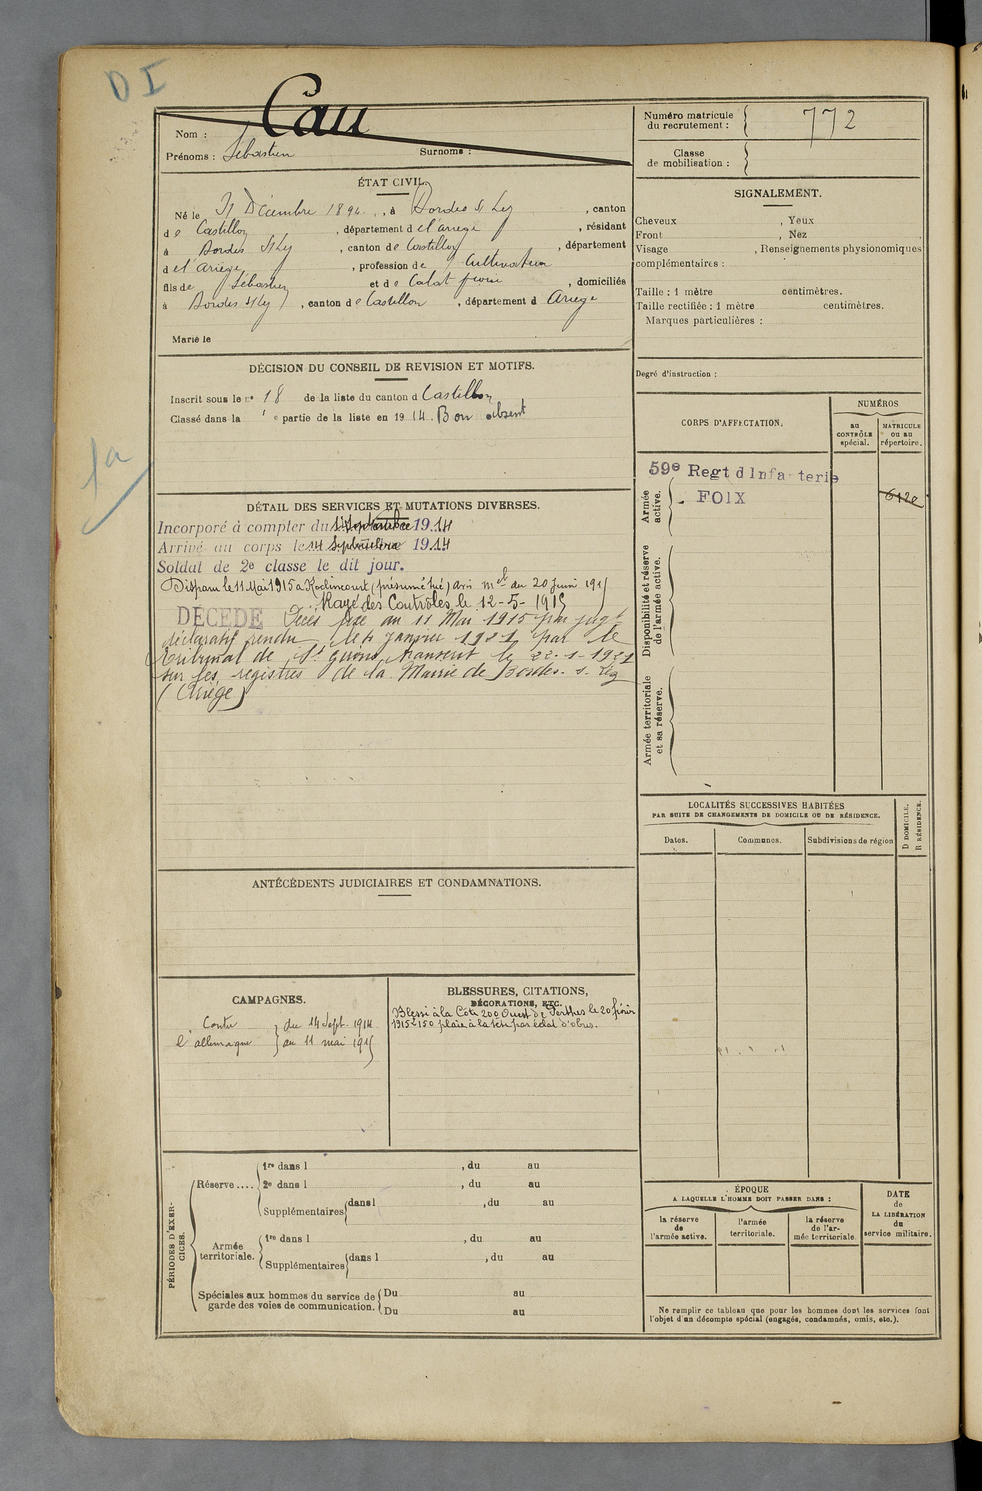 D I
Cau
Nom :
Prénoms : Sébastien Surnoms :
Numéro matricule du recrutement : 772
Classe de mobilisation :
ÉTAT CIVIL.
Né le 31 Décembre 1894, à Bordes S/ Lez, canton
de Castillon, département de l'ariege, résidant
à Bordes S/Lez, canton de Castillon, département
de l'ariege, profession de Cultivateur
fils de Sébastien et de Calat, domiciliés
à Bordes s/lez, canton de Castillon, département d Ariege
Marié le
SIGNALEMENT.
Cheveux , Yeux
Front , Nez
Visage , Renseignements physionomiques
complémentaires :
Taille : 1 mètre centimètres.
Taille rectifiée : 1 mètre centimètres.
Marques particulières :
Degré d'instruction :
DÉCISION DU CONSEIL DE REVISION ET MOTIFS.
Inscrit sous le n° 18 de la liste du canton d Castillon
Classé dans la 1e partie de la liste en 1914. Bon absent
1a
CORPS D'AFFECTATION.
NUMÉROS
au CONTRÔLE spécial.
MATRICULE ou au répertoire.
Armée active.
59e Regt d'Infanterie
FOIX
Disponibilité et réserve de l'armée active.
Armée territoriale et sa réserve.
DÉTAIL DES SERVICES ET MUTATIONS DIVERSES.
Incorporé à compter du 14 Septembre 1914
Arrivé au corps le 14 Septembre 1914
Soldat de 2e classe le dit jour.
Disparu le 11 Mai 1915 a Roclincourt (présumé tué) avis mel du 20 Juin 1915
Rayé des Contrôles le 12-5-1915
DÉCÉDÉ Décès fixé au 11 Mai 1915 par jugt
déclaratif rendu le 4 janvier 1921 par le
Tribunal de St Girons transcrit le 22-1-1921
sur les registres de la Mairie de Bordes-s-Lez
(Ariège)
LOCALITÉS SUCCESSIVES HABITÉES
PAR SUITE DE CHANGEMENTS DE DOMICILE OU DE RÉSIDENCE.
Dates. Communes. Subdivisions de région
D DOMICILE.
R RÉSIDENCE.
ANTÉCÉDENTS JUDICIAIRES ET CONDAMNATIONS.
CAMPAGNES.
Contre du 14 Sept. 1914
l'allemagne au 11 mai 1915
BLESSURES, CITATIONS,
DÉCORATIONS, ETC.
Blessé à la Côte 200 Ouest de Perthes le 20 février
1915 plaie à la tête par éclat d'obus.
PÉRIODES D'EXERCICES.
Réserve.... 1re dans l , du au
2e dans l , du au
Supplémentaires dans l , du au
Armée territoriale. 1re dans l , du au
Supplémentaires dans l , du au
Spéciales aux hommes du service de garde des voies de communication. Du au
Du au
ÉPOQUE
A LAQUELLE L'HOMME DOIT PASSER DANS :
la réserve de l'armée active.
l'armée territoriale.
la réserve de l'armée territoriale.
DATE de LA LIBÉRATION du service militaire.
Ne remplir ce tableau que pour les hommes dont les services font
l'objet d'un décompte spécial (engagés, condamnés, omis, etc.).